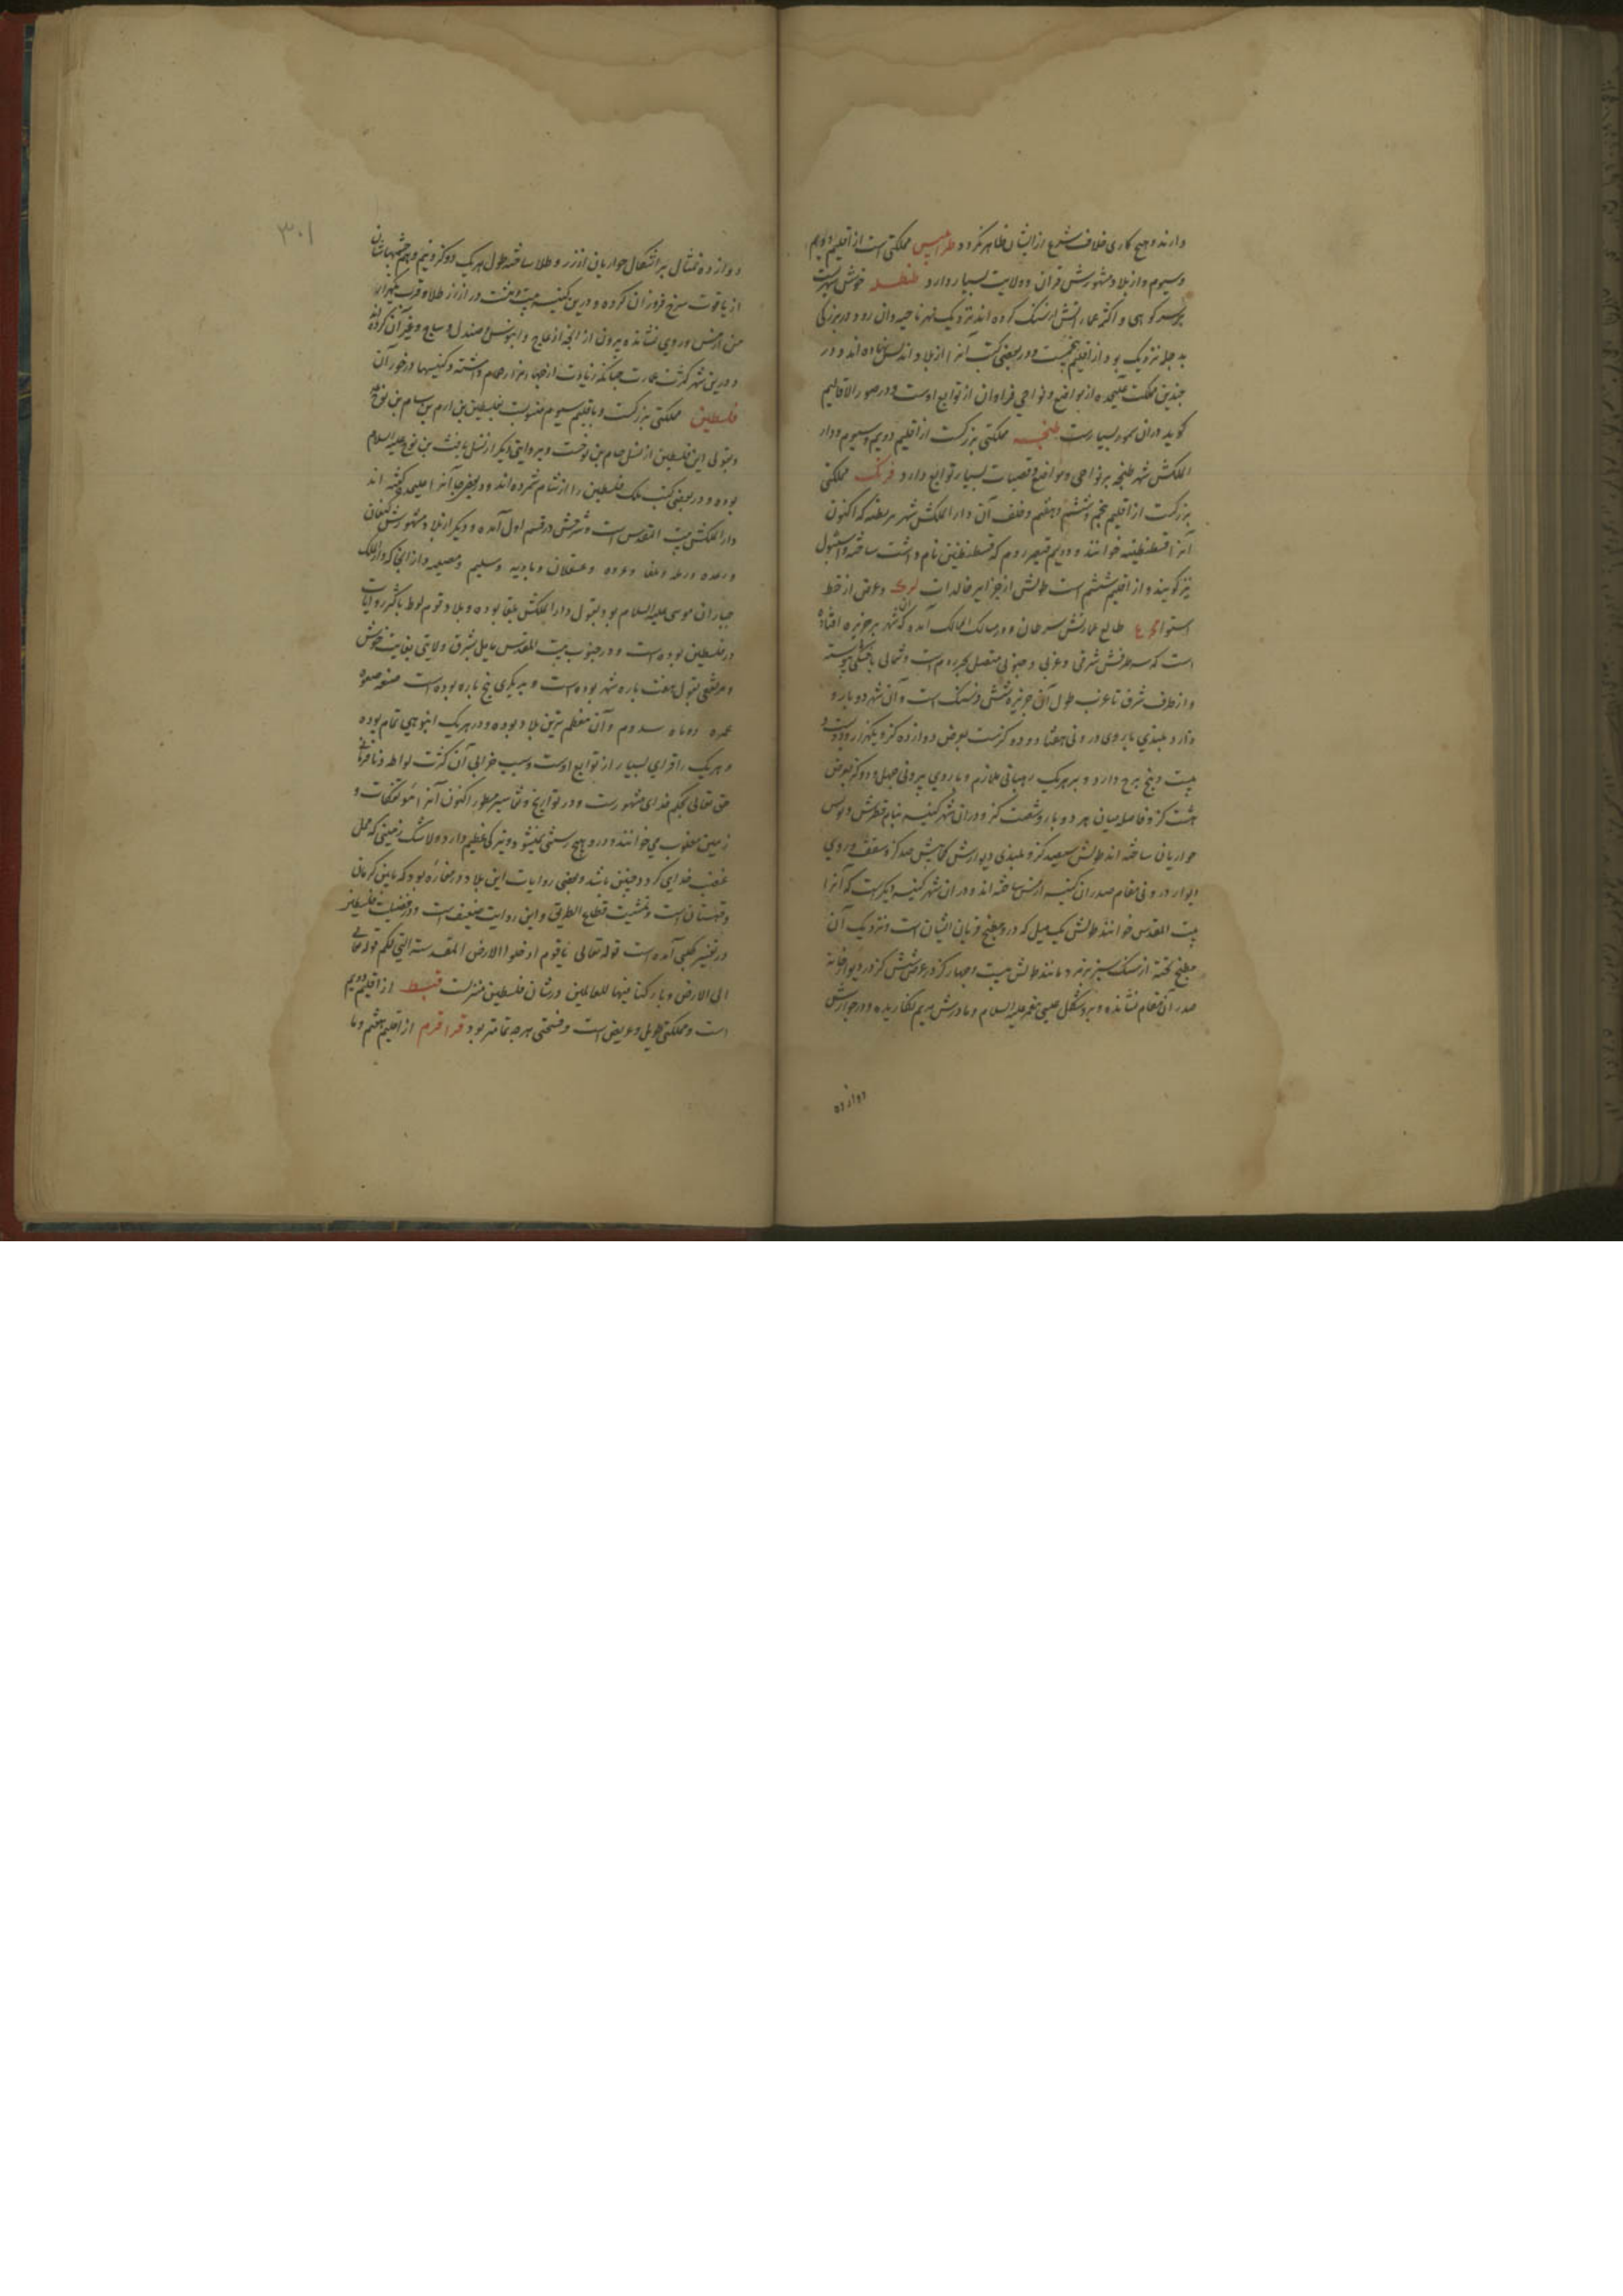 دارند و هیچ کاری خلاف شرع از ایشان ظاهر نگردد طرابلس مملکتی است از اقلیم دویم
و سیوم و از بلاد مشهورش قران و ولایت بسیار دارد طنطله خوش شهریست
بر سر کوهی و اکثر عماراتش از سنک کرده‌اند نزدیک نهر ناحیه و آن رود در بزرکی
بدجله نزدیک بود از اقلیم پنجمست و در بعضی کتب آنرا از بلاد اندلس نهاده‌اند و در
چندین مملکت علیحده از مواضع و نواحی فراوان از توابع اوست و در صور الاقالیم
کوید در آن سمور بسیارست طنجه مملکتی بزرکست از اقلیم دویم و سیوم و دار
الملکش شهر طنجه بر نواحی و مواضع و قصبات بسیار توابع دارد فرنک مملکتی
بزرکست از اقلیم پنجم و ششم و هفتم و خلف آن و دار الملکش شهر بزنطیه که اکنون
آنرا قسطنطنیه خوانند و دویم قیصر روم که قسطنطین نام داشت ساخته و استنبول
نیز کویند و از اقلیم ششم است طولش از جزایر خالدات و عرض از خط
استوا طالع عمارتش سرطان و در مسالک الممالک آمده که آن شهر بر جزیره افتاده
است که سه طرفش شرقی و غربی و جنوبی متصل بحر روم است و شمالی با خشکی پیوسته
و از طرف شرق تا غرب طول آن جزیره شش فرسنک است و آن شهر دو بارو
دارد بلندی باروی درونی هفتاد و دو کزست بعرض دوازده کز و یکهزار و دویست و
بیست و پنج برج دارد و بر هر یک رهبانی ملازم و باروی بیرونی چهل و دو کز بعرض
هشت کز و فاصله میان هر دو بارو شصت کز و در آن شهر کنیسه بنام فطرس و بولس
حواریان ساخته‌اند طولش سیصد کز و بلندی دیوارش کمابیش صد کز و سقف و روی
دیوار درونی مقام صدر آن کنیسه از مس ساخته‌اند و در آن شهر کنیسه دیکرست که آنرا
بیت المقدس خوانند طولش یک میل که در و مطبخ قربان ایشان است و نزدیک آن
مطبخ تخته از سنک سبز زمرد مانند طولش بیست و چهار کز در عرض شش کز در دیوار خانه
صدر آن مقام نشانده و برو شکل عیسی پیغمبر علیه السلام و مادرش مریم نکاریده و در جوارش
دوازده
۳۰۱
دوازده تمثال بر اشکال حواریان از زر و طلا ساخته طول هر یک دو کز و نیم و چشمهاشان
از یاقوت سرخ فروزان کرده و درین کنیسه بیست و هشت در از زر طلا و قرب یکهزار
من از مس و روی نشانده بیرون از آنچه از عاج و ابنوس و صندل و ساج و غیر آن کرده‌اند
و درین شهر کثرت عمارت چنانکه زیادت از چهار هزار حمام داشته و کنیسها در خور آن
فلسطین مملکتی بزرکست و باقلیم سیوم منسوبست بفلسطین بن ارم بن سام بن نوح
و بقولی این فلسطین از نسل حام بن نوحست و بروایتی دیکر از نسل یافث بن نوح علیه السلام
بوده و در بعضی کتب ملک فلسطین را از شام شمرده‌اند و در بعضی جا آنرا علیحده کفته‌اند
دار الملکش بیت المقدس است و شرحش در قسم اول آمده و دیکر از بلاد مشهورش کنعان
و رمله و غزه و عسقلان و و از آنجا که دار الملک
جباران موسی علیه السلام بود بقول دار الملکش بلقا بوده و بلاد قوم لوط باکثر روایات
در فلسطین بوده است و در جنوب بیت المقدس مایل بشرق ولایتی بغایت خوش
و مرتفع بقول هفت پاره شهر بوده است و بدیکری پنج پاره بوده است صعوه
عمره دوماه سدوم و آن معظم ترین بلاد بوده و در هر یک انبوهی تمام بوده
و هر یک را قرای بسیار از توابع اوست و سبب خرابی آن کثرت لواطه و نافرمانی
حق تعالی بحکم خدای مشهورست و در تواریخ و تفاسیر مسطور اکنون آنرا مؤتفکات و
زمین مقلوب می خوانند و درو هیچ رستنی نمیشود و تیرکی عظیم دارد و لاشک زمینی که محل
غضب خدای کردد چنین باشد و بعضی روایات این بلاد در مفازه بود که مابین کرمان
و قهستان است و نشست قطاع الطریق و این روایت ضعیف است و در فضیلت فلسطین
در تفسیر کلبی آمده است قوله تعالی یا قوم ادخلوا الارض المقدسة التی لکم قوله تعالی
الی الارض و بارکنا فیها للعالمین در شان فلسطین منزلست قبط از اقلیم دویم
است و مملکتی طویل و عریض است و فسحتی هر چه تمامتر بود قراقرم از اقلیم هفتم و ما